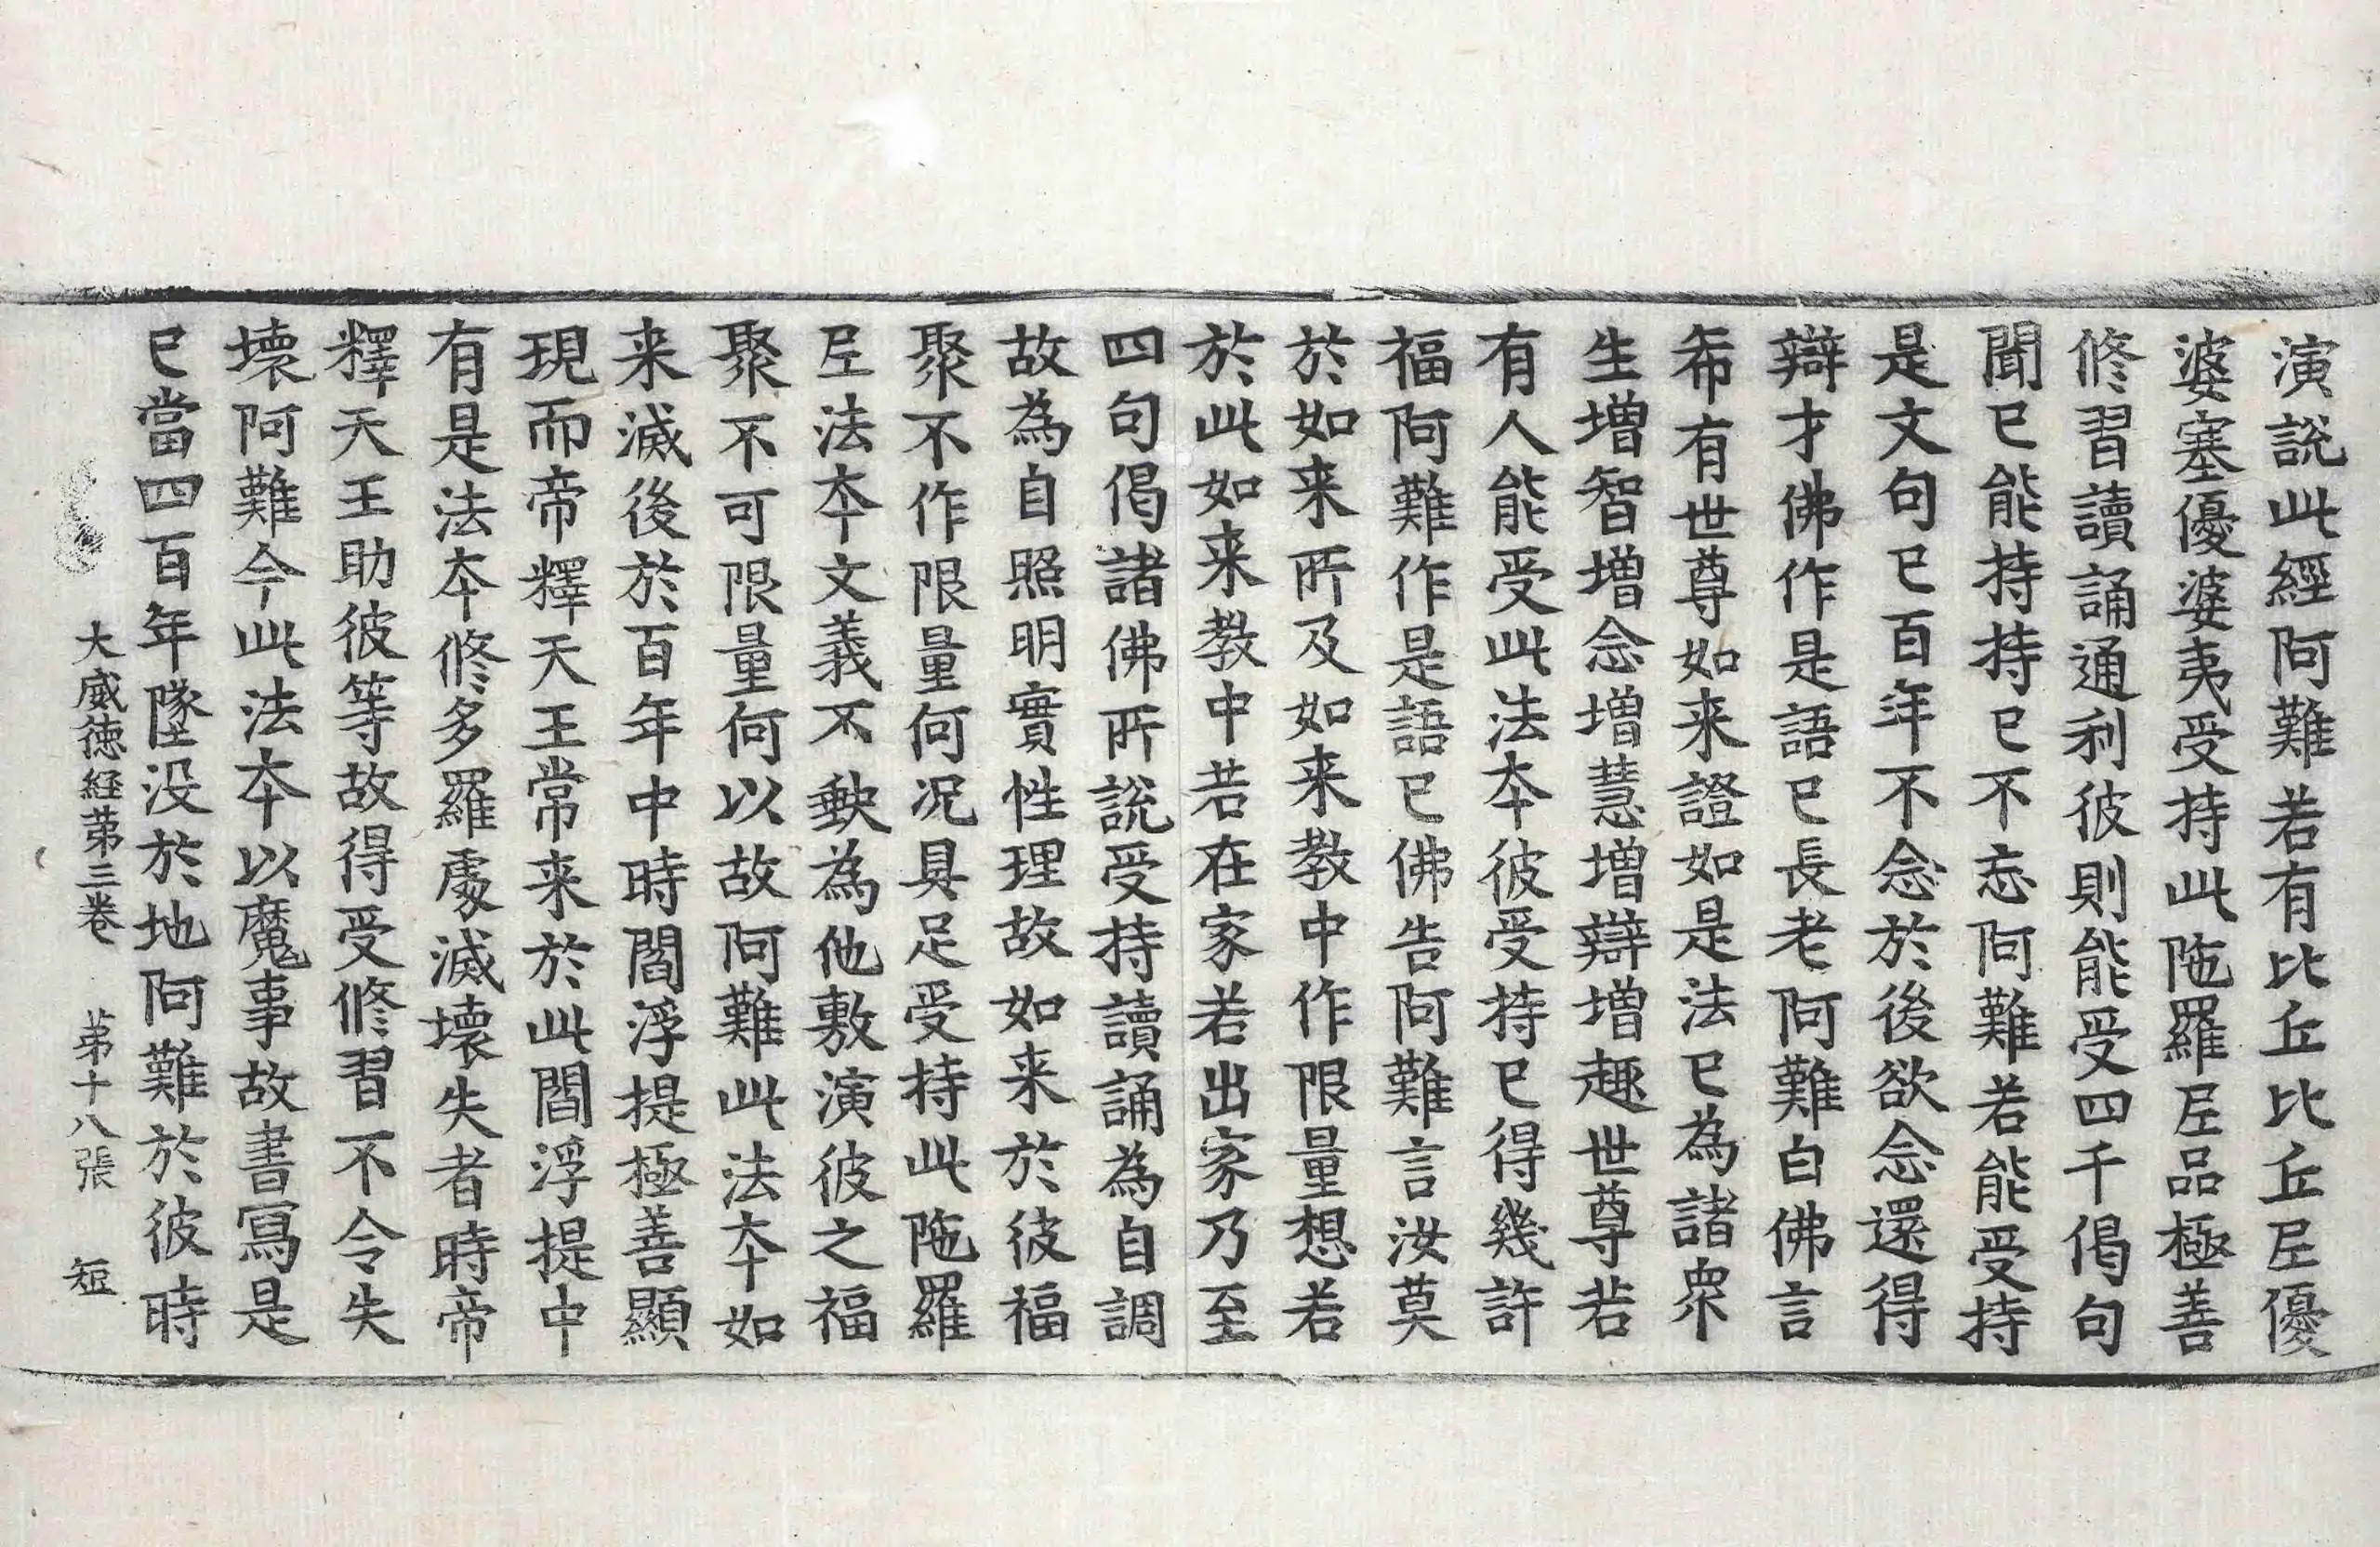 演說此經阿難若有比丘比丘尼優
婆塞優婆夷受持此陁羅尼品極善
修習讀誦通利彼則能受四千偈句
聞已能持持已不忘阿難若能受持
是文句已百年不念於後欲念還得
辯才佛作是語已長老阿難白佛言
希有世尊如来證如是法已為諸衆
生增智增念增慧增辯增趣世尊若
有人能受此法夲彼受持已得幾許
福阿難作是語已佛告阿難言汝莫
於如来所及如来教中作限量想若
於此如来教中若在家若出家乃至
四句偈諸佛所說受持讀誦為自調
故為自照明實性理故如来於彼福
聚不作限量何况具足受持此陁羅
尼法夲文義不缺為他敷演彼之福
聚不可限量何以故阿難此法夲如
来滅後於百年中時閻浮提極善顯
現而帝釋天王常来於此閻浮提中
有是法夲修多羅處滅壞失者時帝
釋天王助彼等故得受修習不令失
壞阿難今此法夲以魔事故書寫是
已當四百年墜没於地阿難於彼時
大威徳経苐三卷 苐十八張 短